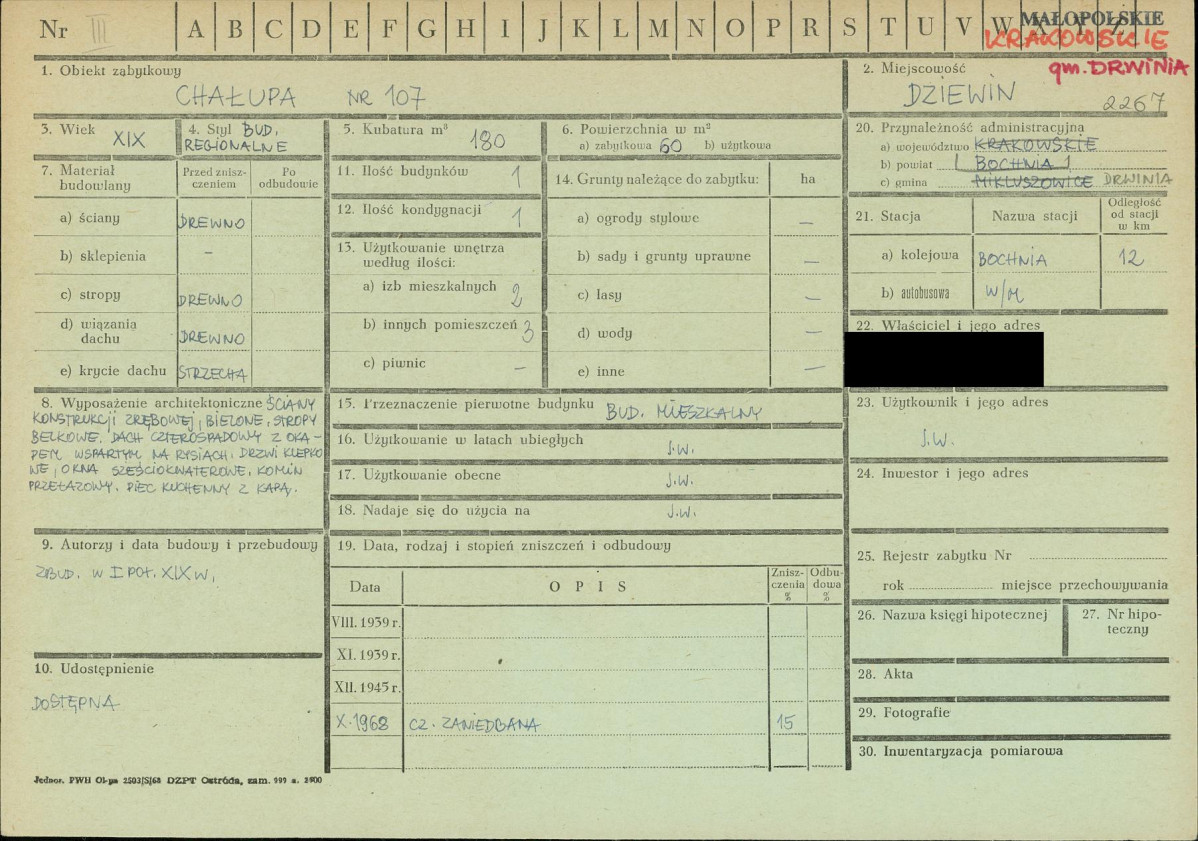 Nr III A B C D E F G H I J K L M N O P R S T U V W X Y Z
MAŁOPOLSKIE
KRAKOWSKIE
gm. DRWINIA
1. Obiekt zabytkowy
CHAŁUPA NR 107
2. Miejscowość
DZIEWIN
2267
3. Wiek XIX
4. Styl BUD.
REGIONALNE
5. Kubatura m³ 180
6. Powierzchnia w m²
a) zabytkowa 60 b) użytkowa
7. Materiał
budowlany
Przed znisz-
czeniem
Po
odbudowie
a) ściany DREWNO
b) sklepienia –
c) stropy DREWNO
d) wiązania
dachu DREWNO
e) krycie dachu STRZECHA
8. Wyposażenie architektoniczne ŚCIANY
KONSTRUKCJI ZRĘBOWEJ, BIELONE, STROPY
BELKOWE. DACH CZTEROSPADOWY Z OKA-
PEM WSPARTYM NA RYSIACH. DRZWI KLEPKO
WE, OKNA SZEŚCIOKWATEROWE, KOMIN
PRZEŁAZOWY. PIEC KUCHENNY Z KAPĄ.
9. Autorzy i data budowy i przebudowy
ZBUD. W I POŁ. XIX W.
10. Udostępnienie
DOSTĘPNA
11. Ilość budynków 1
12. Ilość kondygnacji 1
13. Użytkowanie wnętrza
według ilości:
a) izb mieszkalnych 2
b) innych pomieszczeń 3
c) piwnic –
14. Grunty należące do zabytku: ha
a) ogrody stylowe –
b) sady i grunty uprawne –
c) lasy –
d) wody –
e) inne –
15. Przeznaczenie pierwotne budynku BUD. MIESZKALNY
16. Użytkowanie w latach ubiegłych J.W.
17. Użytkowanie obecne J.W.
18. Nadaje się do użycia na J.W.
19. Data, rodzaj i stopień zniszczeń i odbudowy
Data OPIS
Znisz-
czenia
%
Odbu-
dowa
%
VIII. 1939 r.
XI. 1939 r.
XII. 1945 r.
X. 1968 CZ. ZANIEDBANA 15
20. Przynależność administracyjna
a) województwo KRAKOWSKIE
b) powiat BOCHNIA
c) gmina MIKLUSZOWICE DRWINIA
21. Stacja Nazwa stacji
Odległość
od stacji
w km
a) kolejowa BOCHNIA 12
b) autobusowa W/M
22. Właściciel i jego adres
23. Użytkownik i jego adres
J.W.
24. Inwestor i jego adres
25. Rejestr zabytku Nr
rok miejsce przechowywania
26. Nazwa księgi hipotecznej
27. Nr hipo-
teczny
28. Akta
29. Fotografie
30. Inwentaryzacja pomiarowa
Jednor. PWH Ol-pu 2503/S/68 DZPT Ostróda, zam. 999 n. 2500